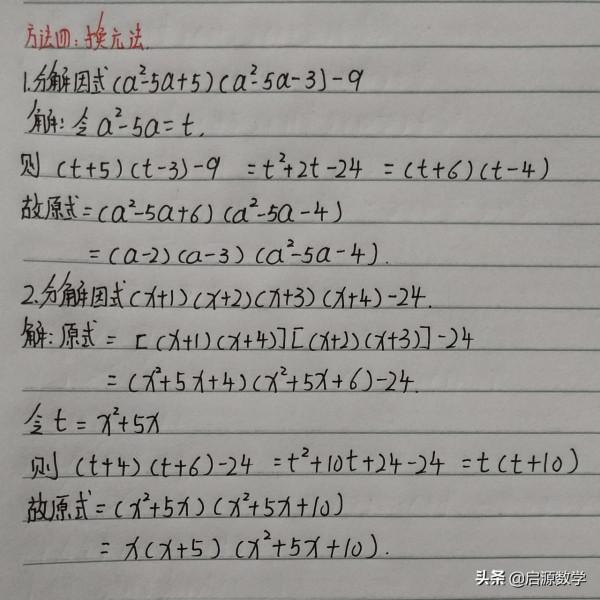 方法四:换元法.
1.分解因式(a²-5a+5)(a²-5a-3)-9
解:令a²-5a=t.
则 (t+5)(t-3)-9 =t²+2t-24 =(t+6)(t-4)
故原式=(a²-5a+6)(a²-5a-4)
=(a-2)(a-3)(a²-5a-4).
2.分解因式(x+1)(x+2)(x+3)(x+4)-24.
解:原式= [(x+1)(x+4)][(x+2)(x+3)]-24
=(x²+5x+4)(x²+5x+6)-24.
令t=x²+5x
则 (t+4)(t+6)-24 =t²+10t+24-24 =t(t+10)
故原式=(x²+5x)(x²+5x+10)
=x(x+5)(x²+5x+10).
头条 @启源数学